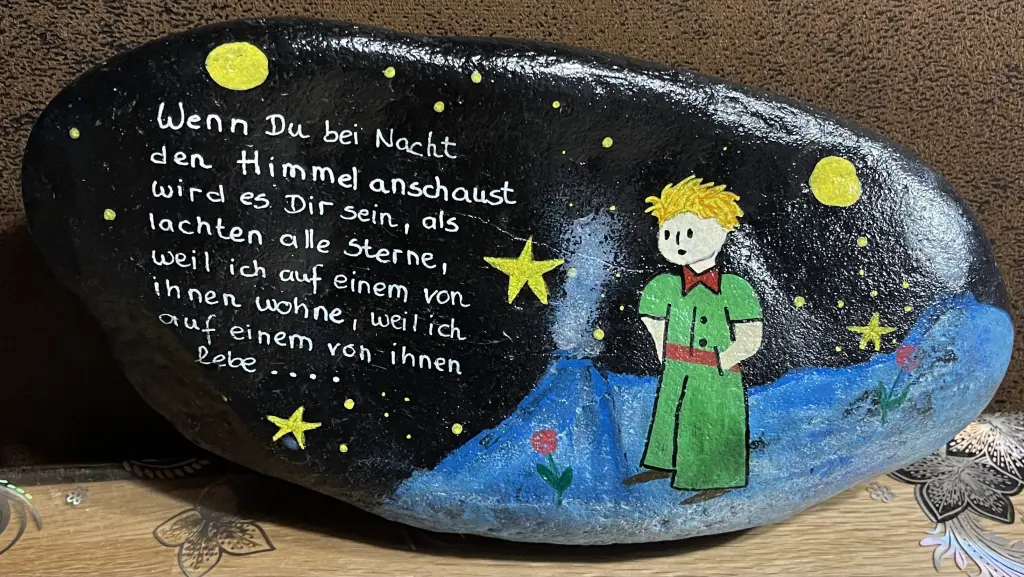 Wenn Du bei Nacht
den Himmel anschaust
wird es Dir sein, als
lachten alle Sterne,
weil ich auf einem von
ihnen wohne, weil ich
auf einem von ihnen
lebe ....